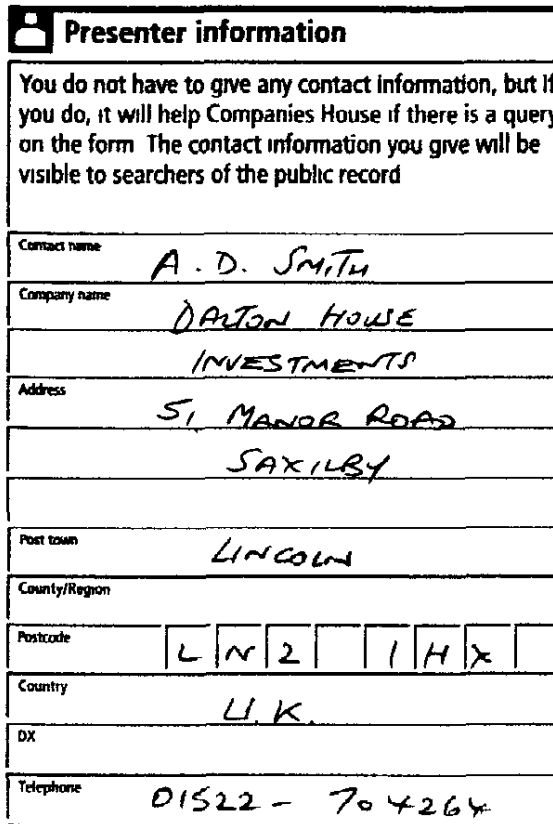 Presenter information
You do not have to give any contact information, but if
you do, it will help Companies House if there is a query
on the form The contact information you give will be
visible to searchers of the public record
Contact name
A. D. SMITH
Company name
DALTON HOUSE
INVESTMENTS
Address
5, MANOR ROAD
SAXILBY
Post town
LINCOLN
County/Region
Postcode
LN2 1HX
Country
U.K.
DX
Telephone
01522 - 704264